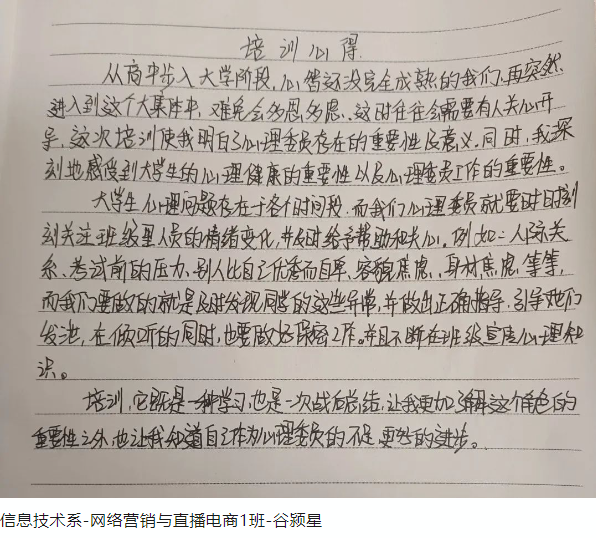 培训心得
从高中步入大学阶段,心智还没完全成熟的我们,再突然
进入到这个大集体中,难免会多思多虑,这时往往会需要有人关心开
导,这次培训使我明白了心理委员存在的重要性及意义,同时,我深
刻地感受到大学生的心理健康的重要性以及心理委员工作的重要性。
大学生心理问题存在于各个时间段,而我们心理委员就要时时刻
刻关注班级里人员的情绪变化,并及时给予帮助和关心。例如:人际关
系、考试前的压力、别人比自己优秀而自卑、容貌焦虑、身材焦虑、等等,
而我们要做的就是及时发现同学的这些异常,并做出正确指导,引导他们
发泄,在倾听的同时,也要做好保密工作。并且不断在班级宣传心理知
识。
培训,它既是一种学习,也是一次战后总结,让我更加了解这个角色的
重要性之外,也让我知道自己作为心理委员的不足,更然的进步。
信息技术系-网络营销与直播电商1班-谷颍星